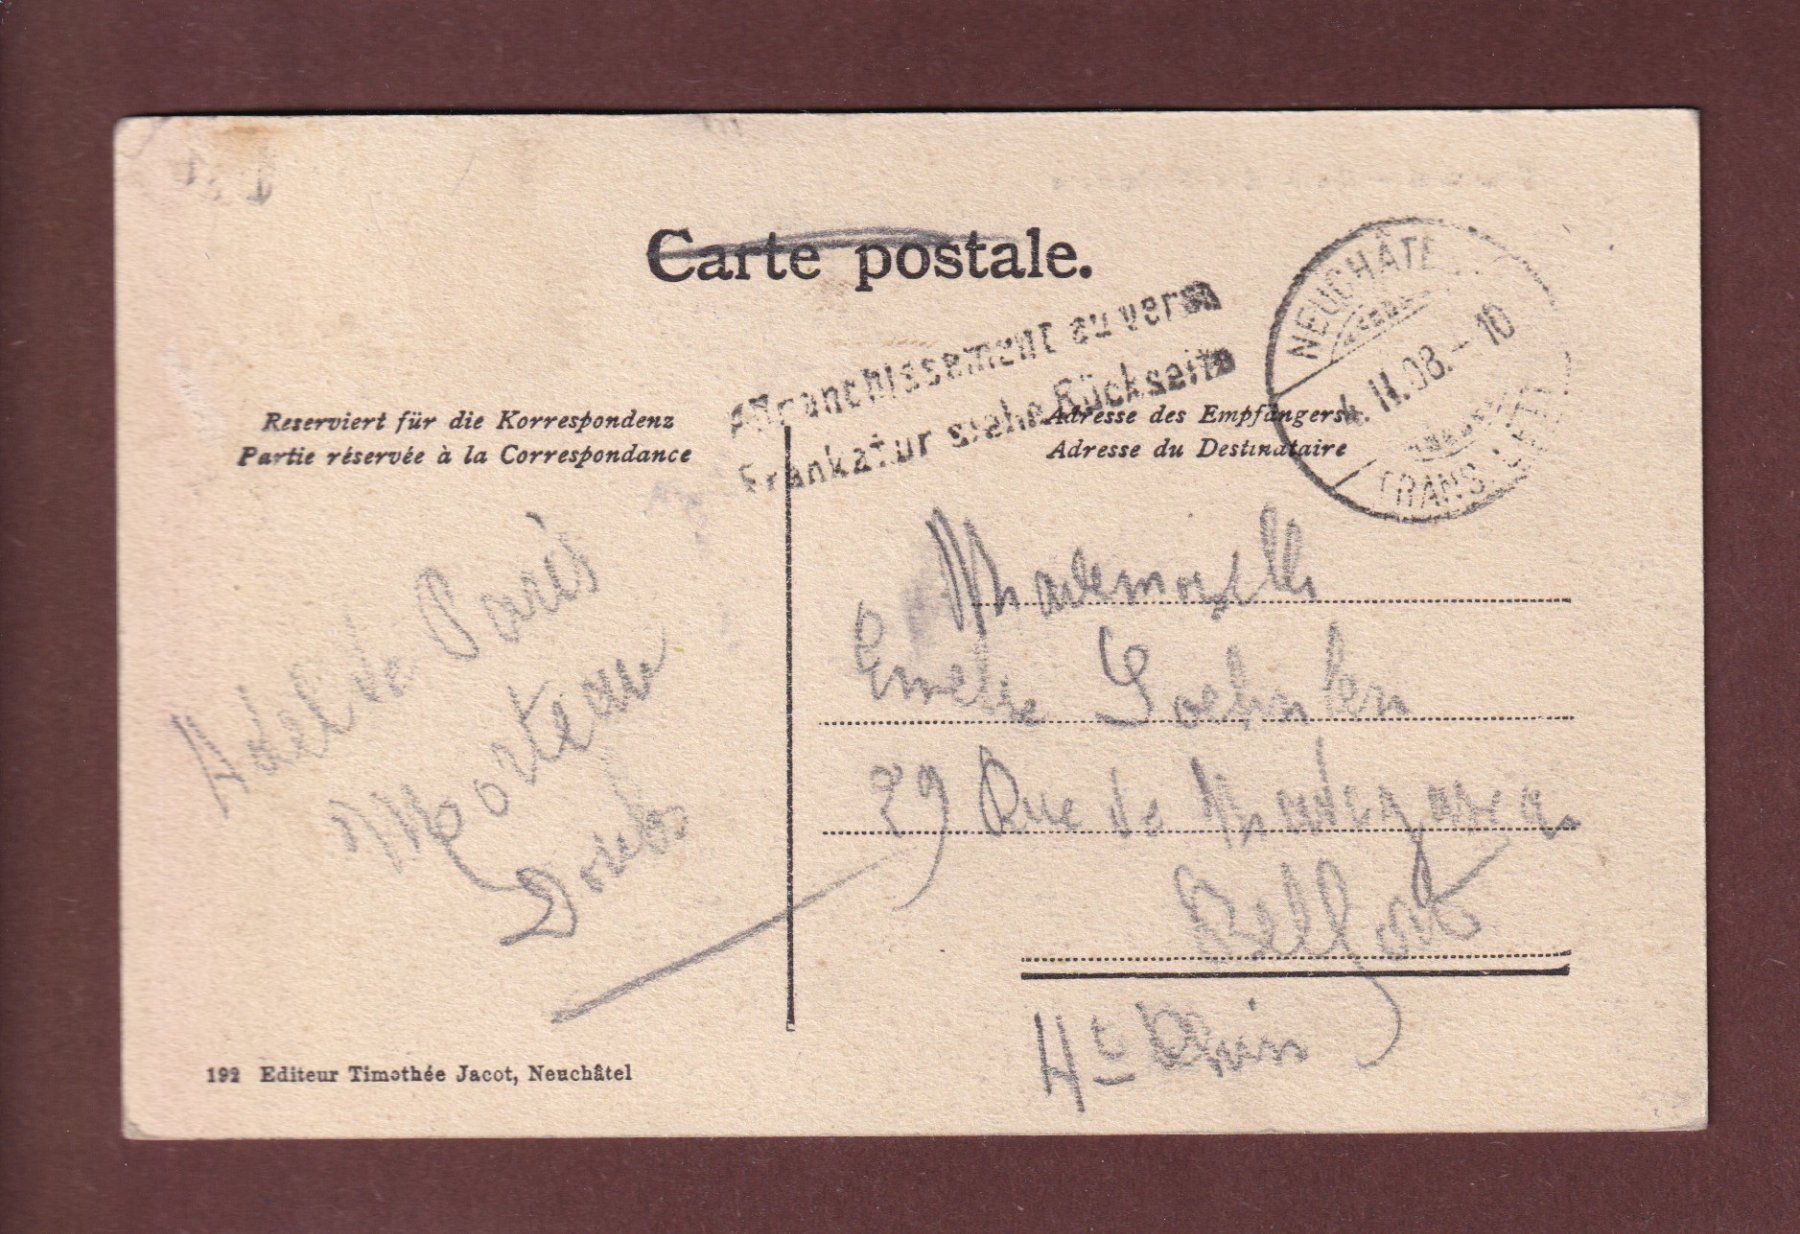 Carte postale.
Affranchissement au verso
Frankatur siehe Rückseite
NEUCHÂTEL
4. II. 08. - 10
TRANS. LETTR.
Reserviert für die Korrespondenz
Partie réservée à la Correspondance
Adresse des Empfängers
Adresse du Destinataire
Hôtel de Paris
Morteau
Doubs
Mademoiselle
29 Rue de Madagascar
Belfort
Ht Rhin
192 Editeur Timothée Jacot, Neuchâtel